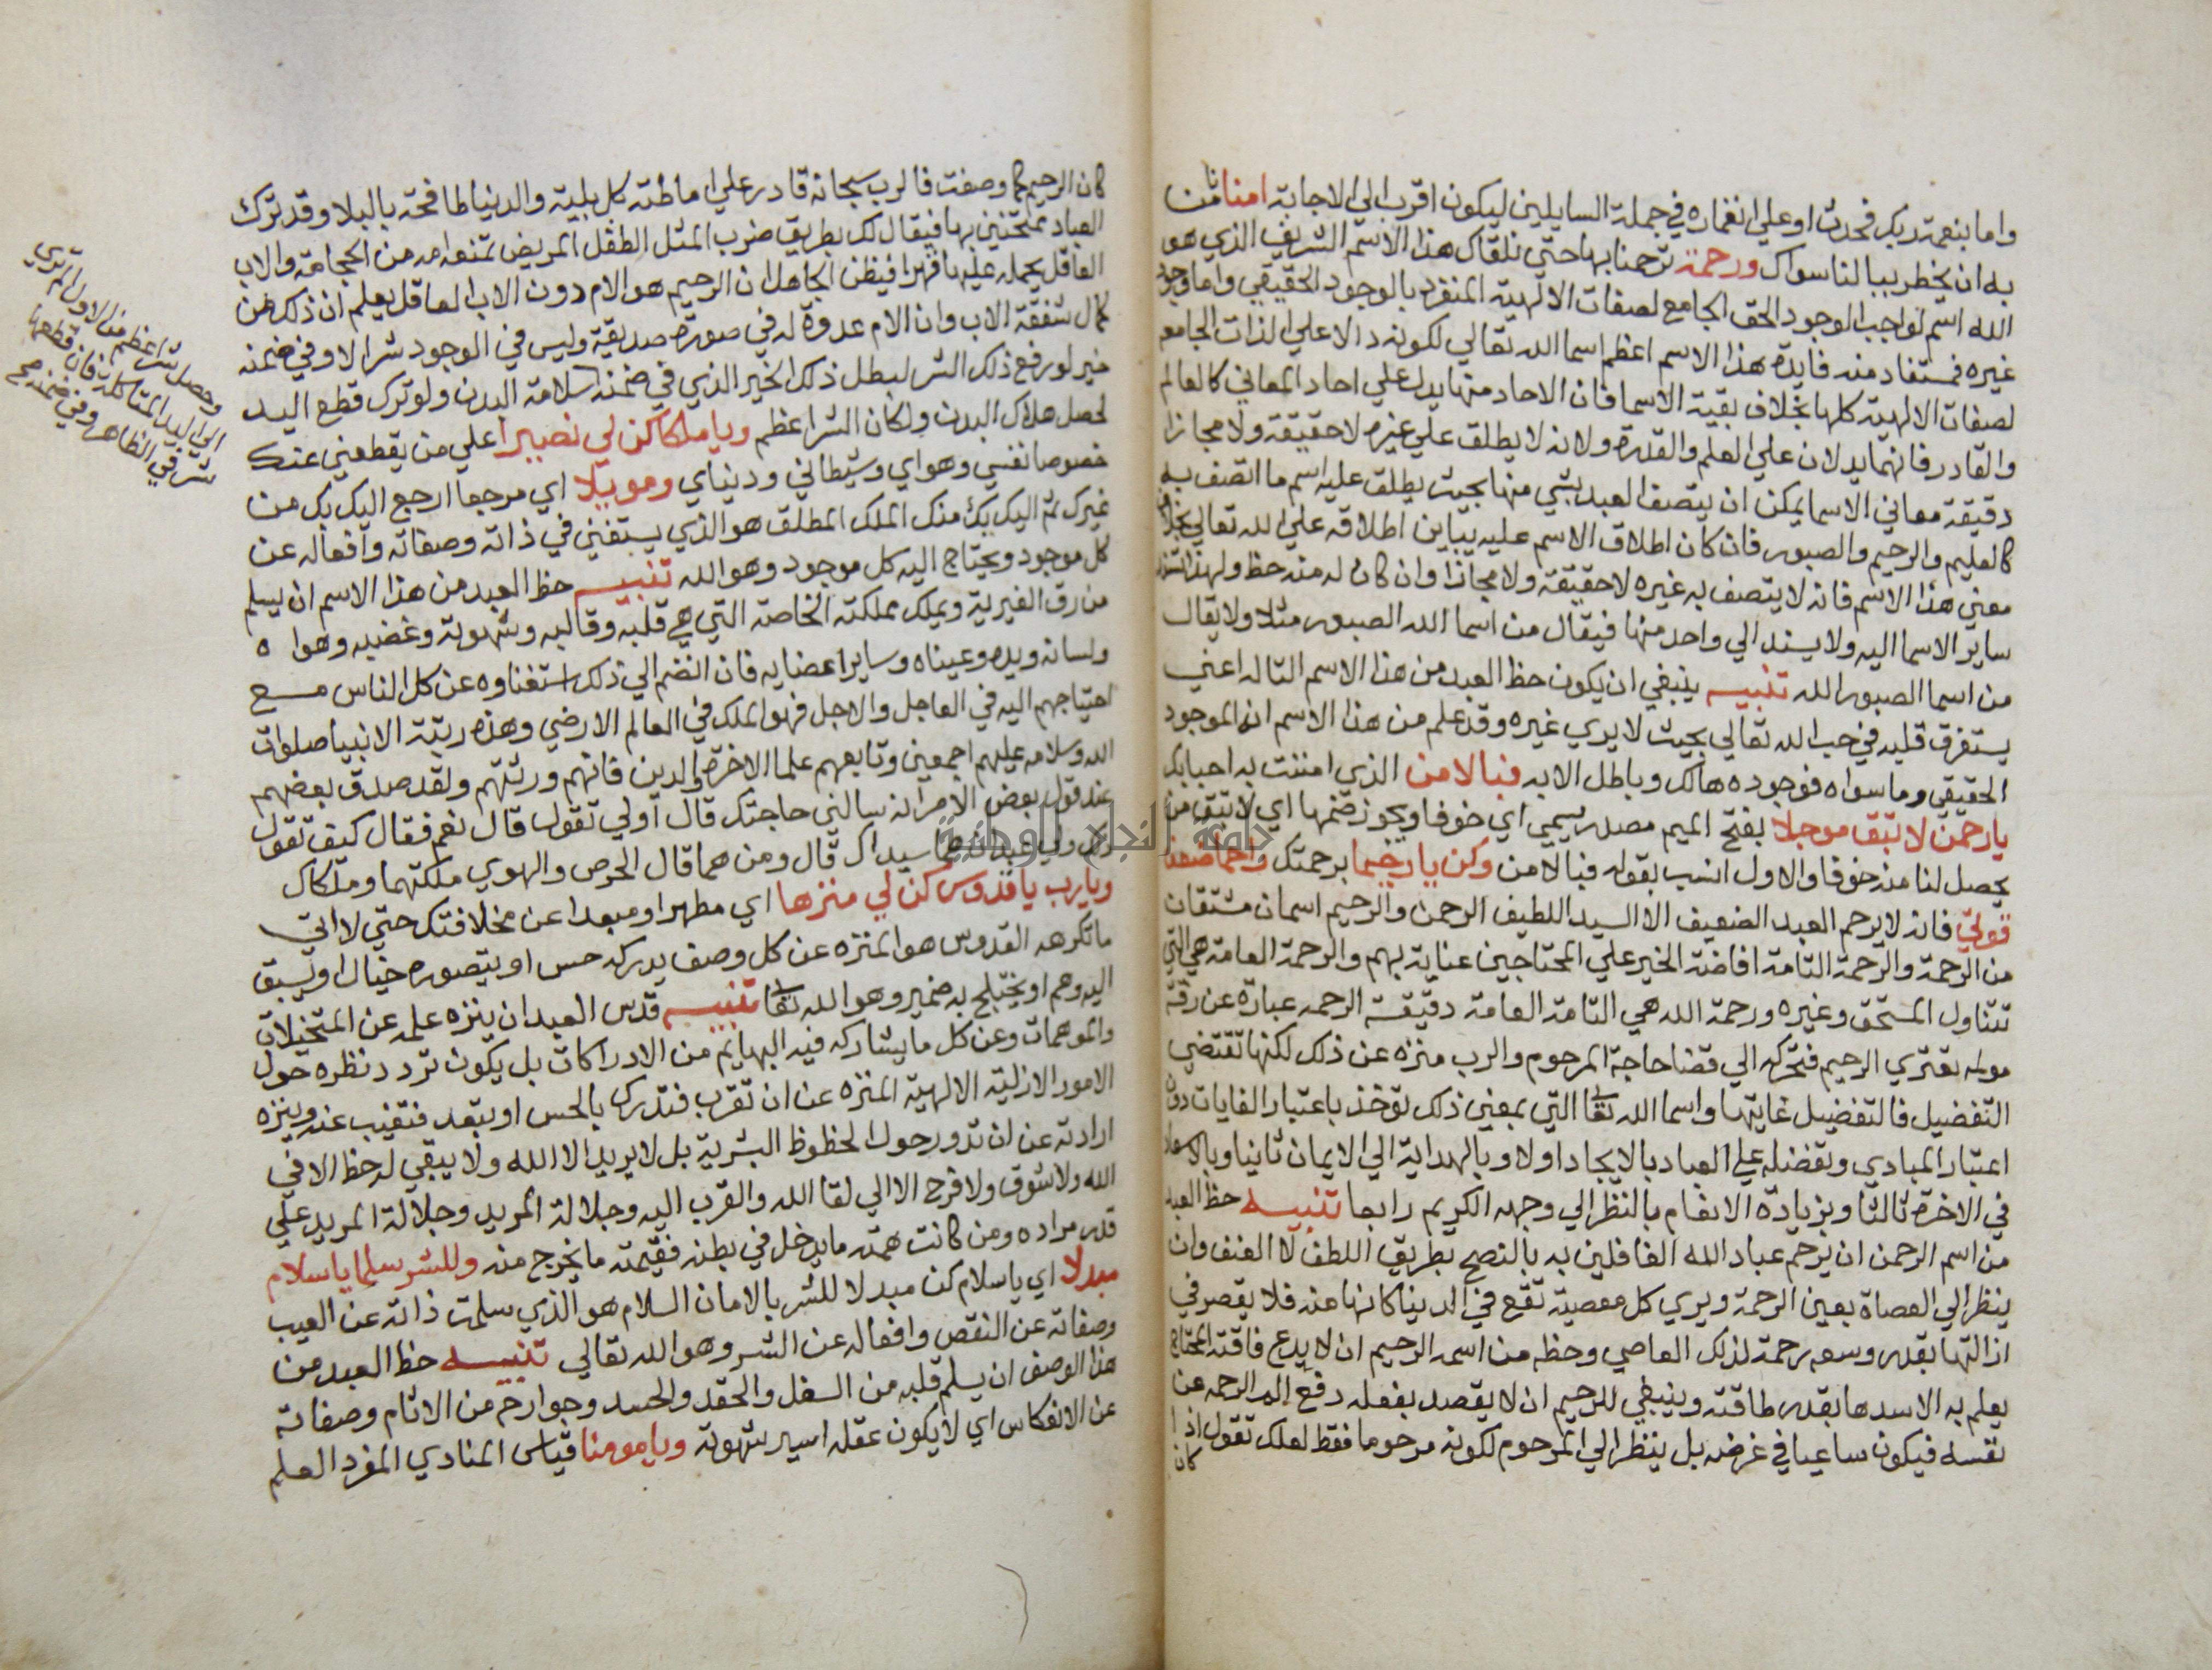 واما بنعمة ربك فحدث او علي انغماره في جملة السايلين ليكون اقرب الي الاجابة امنا نامن
به ان يخطر ببالنا سواك ورحمة ترحمنا بها حتي نلقاك هذا الاسم الشريف الذي هو
الله اسم لواجب الوجود الحق الجامع لصفات الالهية المنفرد بالوجود الحقيقي واما وجود
غيره فمستفاد منه فايده هذا الاسم اعظم اسما الله تعالي لكونه دالا علي الذات الجامع
لصفات الالهية كلها بخلاف بقية الاسما فان الاحاد منها يدل علي احاد المعاني كالعالم
والقادر فانهما يدلان علي العلم والقدرة ولانه لا يطلق علي غيره لا حقيقة ولا مجازا
دقيقة معاني الاسما يمكن ان يتصف العبد بشي منها بحيث يطلق عليه اسم ما اتصف به
كالعليم والرحيم والصبور فان كان اطلاق الاسم عليه يباين اطلاقه علي الله تعالي بخلاف
معني هذا الاسم فانه لا يتصف به غيره لا حقيقة ولا مجازا وان كان له منه حظ ولهذا
ساير الاسما اليه ولا يسند الي واحد منها فيقال من اسما الله الصبور مثلا ولا يقال
من اسما الصبور الله تنبيه ينبغي ان يكون حظ العبد من هذا الاسم التاله اعني
يستغرق قلبه في حب الله تعالي بحيث لا يري غيره وقد علم من هذا الاسم انه الموجود
الحقيقي وما سواه فوجوده هالك وباطل الا به فبالامن الذي امننت به احبابك
يا رحمن لا تبق موجلا بفتح الميم مصدر ميمي اي خوفا ويجوز ضمها اي لا تبق من
يحصل لنا منه خوفا والاول انسب بقوله فبالامن وكن يا رحيما برحمتك راحما ضعفا
قوتي فانه لا يرحم العبد الضعيف الا السيد اللطيف الرحمن والرحيم اسمان مشتقان
من الرحمة والرحمة التامة افاضة الخير علي المحتاجين عناية بهم والرحمة العامة هي التي
تتناول المستحق وغيره ورحمة الله هي التامة العامة دقيقة الرحمه عبارة عن رقة
مولمه تعتري الرحيم فتحركه الي قضا حاجة المرحوم والرب منزه عن ذلك لكنها تقتضي
التفضيل فالتفضيل غايتها واسما الله تعالي التي بمعني ذلك توخذ باعتبار الغايات دون
اعتبار المبادي وتفضله علي العباد بالايجاد اولا وبالهداية الي الايمان ثانيا وبالاسعاد
في الاخرة ثالثا وبزيادة الانعام بالنظر الي وجهه الكريم رابعا تنبيه حظ العبد
من اسم الرحمن ان يرحم عباد الله الغافلين به بالنصح بطريق اللطف لا العنف وان
ينظر الي العصاة بعين الرحمة ويري كل معصية تقع في الدينا كانها منه فلا يقصر في
ازالتها بقدر وسعه رحمة لذلك العاصي وحظه من اسمه الرحيم ان لا يدع فاقة المحتاج
يعلم به الا سدها بقدر طاقته وينبغي للرحيم ان لا يقصد بفعله دفع الم الرحمه عن
نفسه فيكون ساعيا في غرضه بل ينظر الي المرحوم لكونه مرحوما فقط لعلك تقول اذا
كان
كان الرحيم كما وصفت فالرب سبحانه قادر علي اماطته كل بلية والدنيا طافحة بالبلا وقد ترك
العباد ممتحنين بها فيقال لك بطريق ضرب المثل الطفل المريض تمنعه امه من الحجامة والاب
العاقل يحمله عليها قهرا فيظن الجاهل ان الرحيم هو الام دون الاب العاقل يعلم ان ذلك من
كمال شفقة الاب وان الام عدوة له في صورة صديقة وليس في الوجود شر الا وفي ضمنه
خير لو رفع ذلك الشر لبطل ذلك الخير الذي في ضمنه سلامة البدن ولو ترك قطع اليد
لحصل هلاك البدن ولكان الشر اعظم ويا ملكا كن لي نصيرا علي من يقطعني عنك
خصوصا نفسي وهواي وشيطاني ودنياي وموئلا اي مرجعا ارجع اليك بك من
غيرك ثم اليك بك منك الملك المطلق هو الذي يستغني في ذاته وصفاته وافعاله عن
كل موجود ويحتاج اليه كل موجود وهو الله تنبيه حظ العبد من هذا الاسم ان يسلم
من رق الغيرية ويملك مملكته الخاصة التي هي قلبه وقالبه وشهوته وغضبه وهواه
ولسانه ويده وعيناه وساير اعضايه فان انضم الي ذلك استغناوه عن كل الناس مع
احتياجهم اليه في العاجل والاجل فهو الملك في العالم الارضي وهذه رتبة الانبيا صلوات
الله وسلامه عليهم اجمعين وتابعهم علما الاخرة والدين فانهم ورثتهم ولقد صدق بعضهم
عند قول بعض الامرا له سالني حاجتك قال اولي تقول قال نعم فقال كيف تقول
ولي عبدان هما سيداك قال ومن هما قال الحرص والهوي ملكتهما وملكاك
ويا رب يا قدوس كن لي منزها اي مطهرا ومبعدا عن مخلافتك حتي لا اتي
ما تكرهه القدوس هو المنزه عن كل وصف يدركه حس او يتصوره خيال او يسبق
اليه وهم او يختلج به ضمير وهو الله تعالي تنبيه قدس العبد ان ينزه علمه عن المتخيلات
والموهمات وعن كل ما يشاركه فيه البهايم من الادراكات بل يكون تردد نظره حول
الامور الازلية الالهية المنزه عن ان تقرب فتدرك بالحس او تبعد فتغيب عنه وينزه
ارادته عن ان تدور حول الحظوظ البشرية بل لا يريد الا الله ولا يبقي له حظ الا في
الله ولا شوق ولا فرح الا الي لقا الله والقرب اليه وجلالة المريد وجلالة المريد علي
قدر مراده ومن كانت همته ما يدخل في بطنه فقيمته ما يخرج منه وللشر سلما يا سلام
مبدلا اي يا سلام كن مبدلا للشر بالامان السلام هو الذي سلمت ذاته عن العيب
وصفاته عن النقص وافعاله عن الشر وهو الله تعالي تنبيه حظ العبد من
هذا الوصف ان يسلم قلبه من الغل والحقد والحسد وجوارحه من الاثام وصفاته
عن الانعكاس اي لا يكون عقله اسير شهوته ويا مومنا قياس المنادي المفرد العلم
وحصل شر اعظم من الاول الم تري
الي اليد المتاكلة فان قطعها
شر في الظاهر وفي ضمنه
جامعة النجاح الوطنية